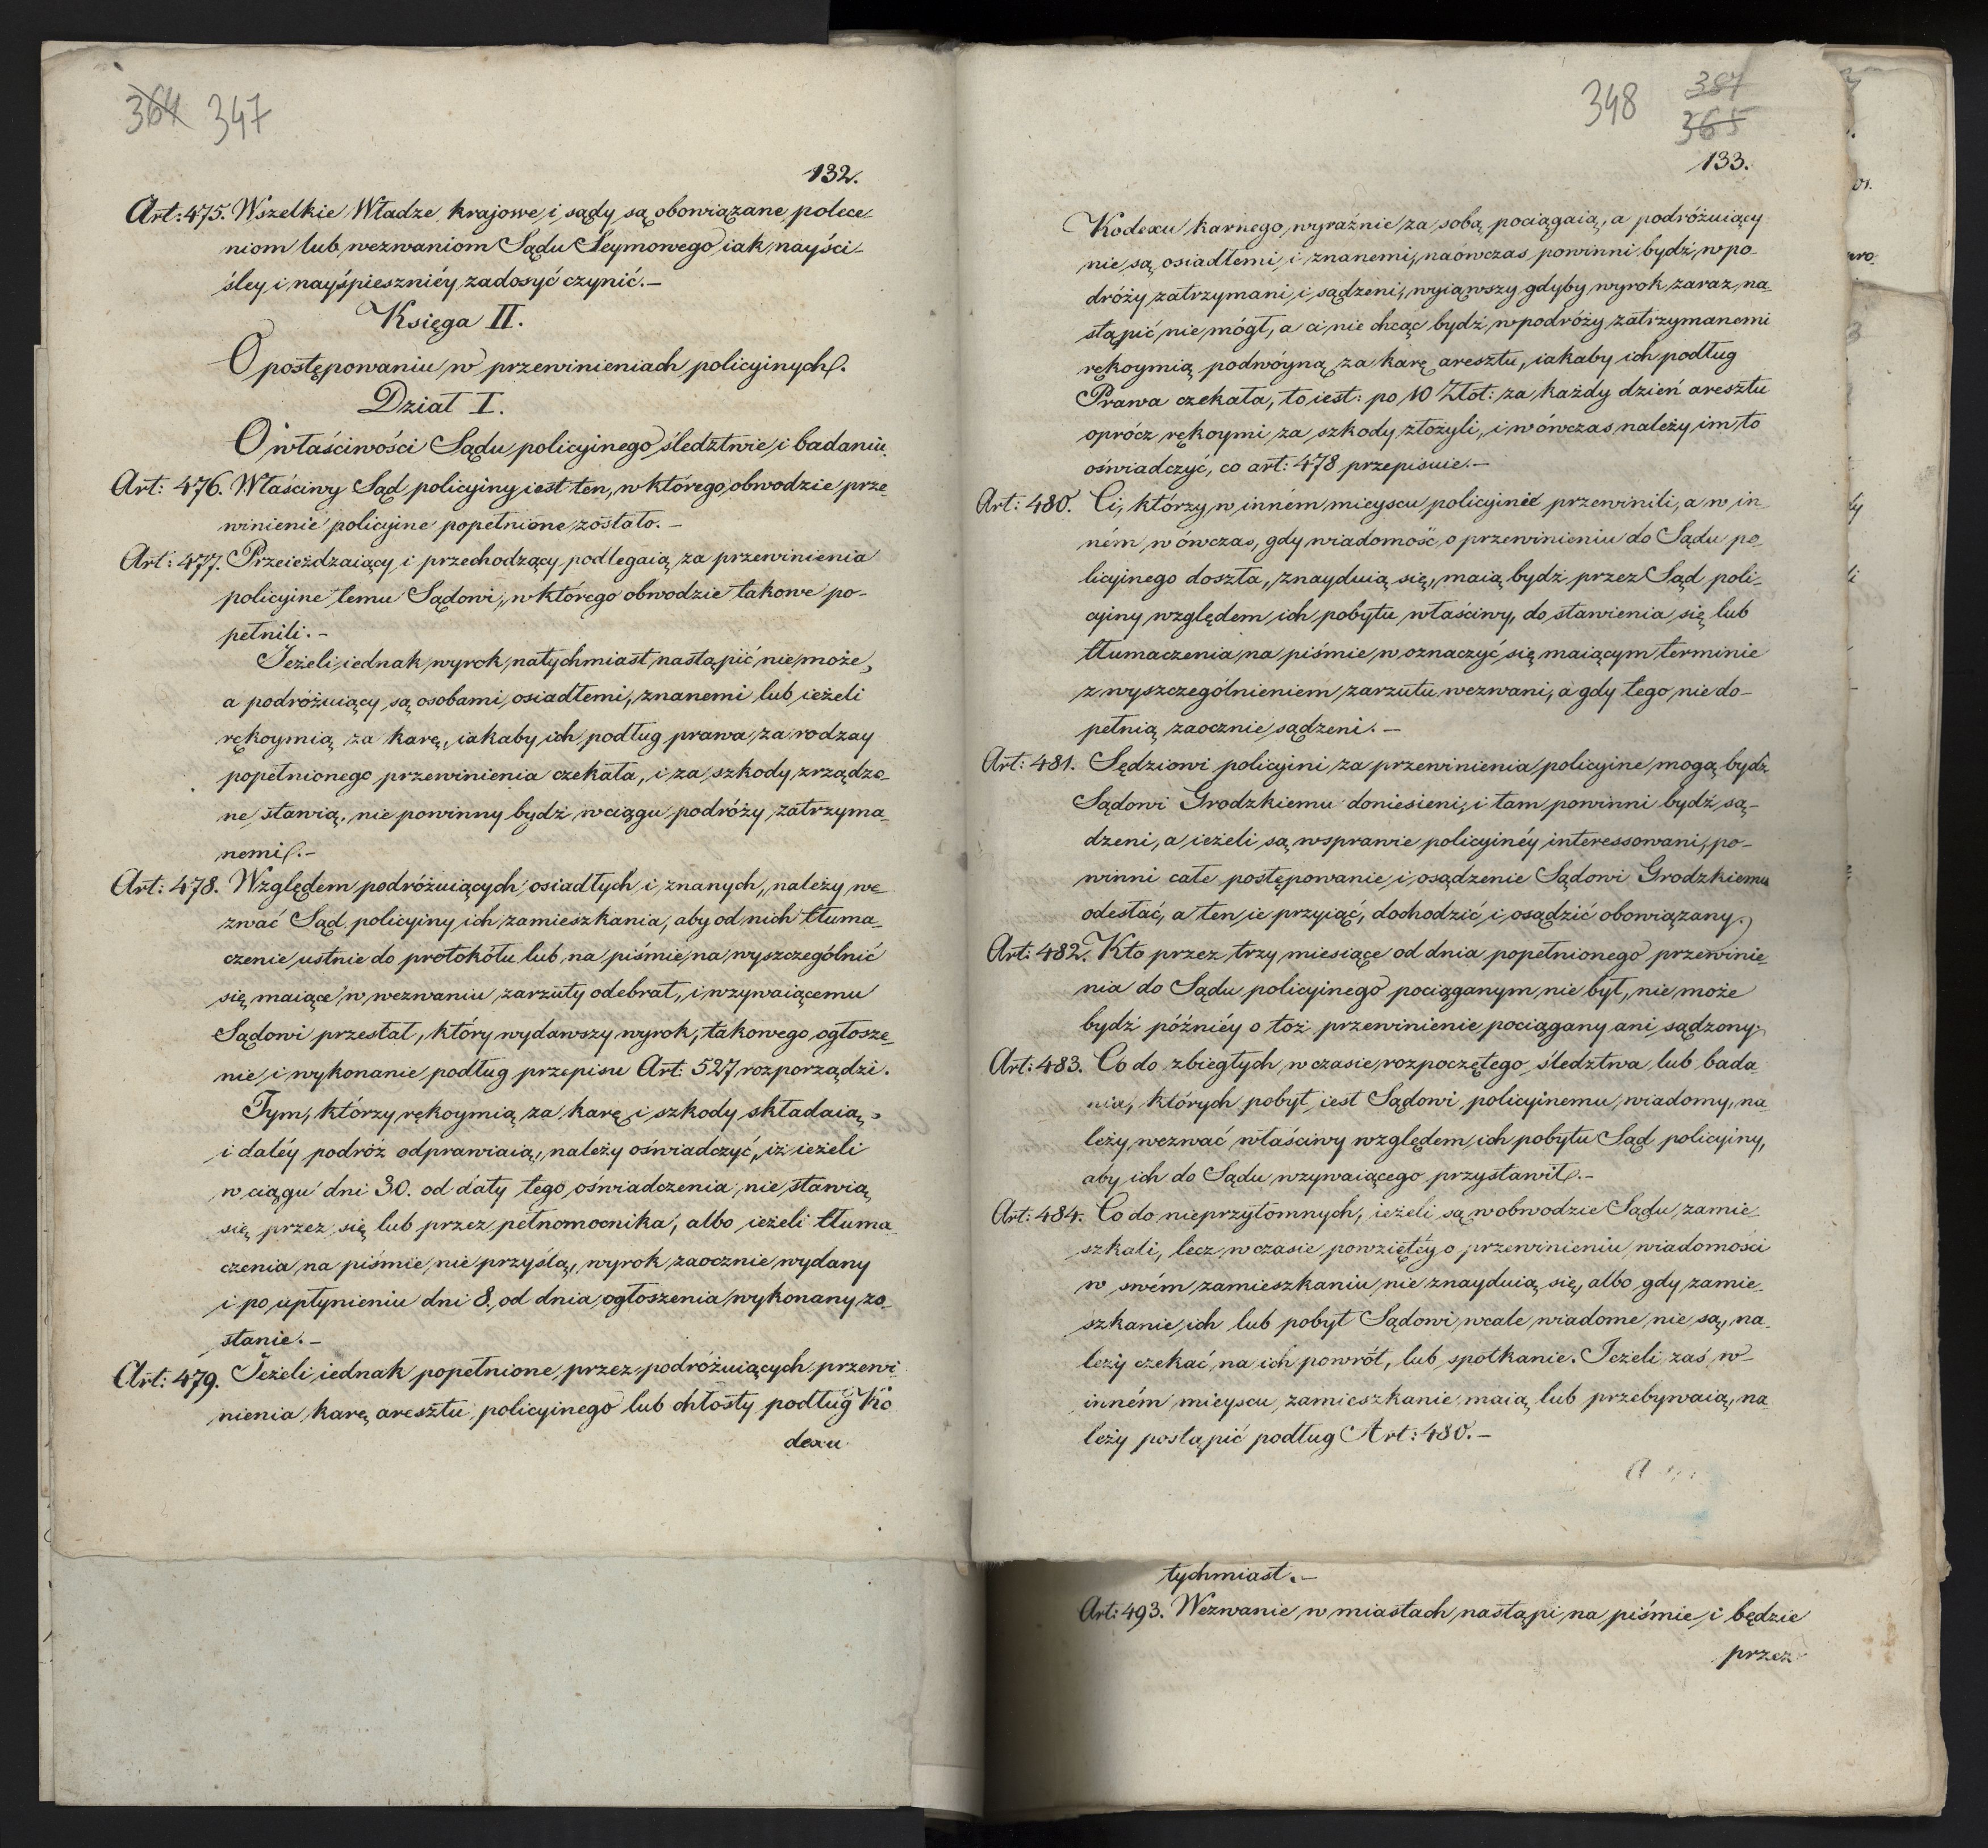 364 347
132.
Art: 475. Wszelkie Władze krajowe i sądy są obowiązane polece-
niom lub wezwaniom Sądu Seymowego iak nayści-
śley i nayśpieszniéy zadosyć czynić.—
Księga II.
O postępowaniu w przewinieniach policyinych.
Dział I.
O właściwości Sądu policyinego śledztwie i badaniu
Art: 476. Właściwy Sąd policyiny iest ten, w którego obwodzie prze-
winienie policyine popełnione zostało.—
Art: 477. Przeieżdzaiący i przechodzący podlegaią za przewinienia
policyine temu Sądowi, w którego obwodzie takowe po-
pełnili.—
Jeżeli iednak wyrok natychmiast nastąpić nie może,
a podróżuiący są osobami osiadłemi, znanemi lub ieżeli
rękoymią za karę, iakaby ich podług prawa za rodzay
popełnionego przewinienia czekała, i za szkody zrządzo-
ne stawią, nie powinny bydź wciągu podróży zatrzyma-
nemi.—
Art: 478. Względem podróżuiących osiadłych i znanych, należy we-
zwać Sąd policyiny ich zamieszkania, aby od nich tłuma-
czenie ustnie do protokółu lub na piśmie na wyszczególnić
się maiące w wezwaniu zarzuty odebrał, i wzywaiącemu
Sądowi przesłał, który wydawszy wyrok, takowego ogłosze-
nie i wykonanie podług przepisu Art: 527 rozporządzi.
Tym, którzy rękoymią za karę i szkody składaią,
i daléy podróż odprawiaią, należy oświadczyć, iż ieżeli
w ciągu dni 30. od daty tego oświadczenia nie stawią
się przez się lub przez pełnomocnika, albo ieżeli tłuma-
czenia na piśmie nie przyślą, wyrok zaocznie wydany
i po upłynieniu dni 8. od dnia ogłoszenia wykonany zo-
stanie.—
Art: 479. Jeżeli iednak popełnione przez podróżuiących przewi-
nienia karę aresztu policyinego lub chłosty podług Ko
dexu
348 387
365
133.
Kodexu karnego wyraźnie za sobą pociągaią, a podróżuiący
nie są osiadłemi i znanemi, naówczas powinni bydź w po-
dróży zatrzymani i sądzeni, wyiąwszy gdyby wyrok zaraz na-
stąpić nie mógł, a ci nie chcąc bydź w podróży zatrzymanemi
rękoymią podwóyną za karę aresztu, iakaby ich podług
Prawa czekała, to iest: po 10 Złot: za każdy dzień aresztu
oprócz rękoymi za szkody złożyli, i wówczas należy im to
oświadczyć, co art: 478 przepisuie.—
Art: 480. Ci, którzy w inném mieyscu policyinie przewinili, a w in-
ném wówczas, gdy wiadomość o przewinieniu do Sądu po-
licyinego doszła, znayduią się, maią bydź przez Sąd poli-
cyiny względem ich pobytu właściwy, do stawienia się lub
tłumaczenia na piśmie w oznaczyć się maiącym terminie
z wyszczególnieniem zarzutu wezwani, a gdy tego nie do-
pełnią zaocznie sądzeni.—
Art: 481. Sędziowi policyini za przewinienia policyine mogą bydź
Sądowi Grodzkiemu doniesieni, i tam powinni bydź są-
dzeni, a ieżeli są wsprawie policyinéy interessowani, po-
winni całe postępowanie i osądzenie Sądowi Grodzkiemu
odesłać, a ten ie przyiąć, dochodzić i osądzić obowiązany.
Art: 482. Kto przez trzy miesiące od dnia popełnionego przewinie-
nia do Sądu policyinego pociąganym nie był, nie może
bydź późniéy o toż przewinienie pociągany ani sądzony.
Art: 483. Co do zbiegłych w czasie rozpoczętego śledztwa lub bada-
nia, których pobyt iest Sądowi policyinemu wiadomy, na-
leży wezwać właściwy względem ich pobytu Sąd policyiny,
aby ich do Sądu wzywaiącego przystawił.—
Art: 484. Co do nieprzytomnych, ieżeli są w obwodzie Sądu zamie-
szkali, lecz w czasie powziętéy o przewinieniu wiadomości
w swém zamieszkaniu nie znayduią się, albo gdy zamie-
szkanie ich lub pobyt Sądowi wcale wiadome nie są, na-
leży czekać na ich powrót, lub spotkanie. Jeżeli zaś w
inném mieyscu zamieszkanie maią lub przebywaią, na-
leży postąpić podług Art: 480.—
tychmiast.—
Art: 493. Wezwanie w miastach nastąpi na piśmie i będzie
przez